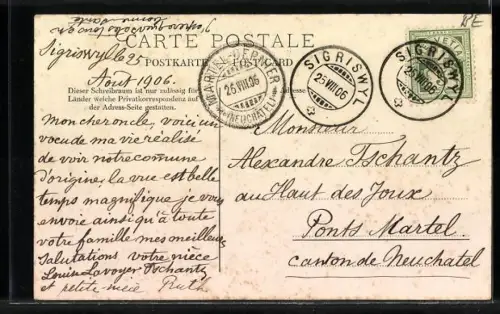 CARTE POSTALE
POSTKARTE POST CARD
Dieser Schreibraum ist nur zulässig für
Länder welche Privatkorrespondenz auf
der Adress-Seite gestatten.
Adresse
Sigriswyl 25
Août 1906.
Mon cher oncle, voici un
voeu de ma vie réalisé
de voir notre commune
d'origine, la vue est belle
temps magnifique je vous
envoie ainsi qu'à toute
votre famille mes meilleures
Salutations votre nièce
Louise Lavoyer Tschantz
et petite-nièce Ruth
SIGRISWYL
25.VIII.06
SIGRISWYL
25.VIII.06
26.VIII.06
(NEUCHATEL)
Monsieur
Alexandre Tschantz
au Haut des Joux
Ponts Martel
canton de Neuchatel